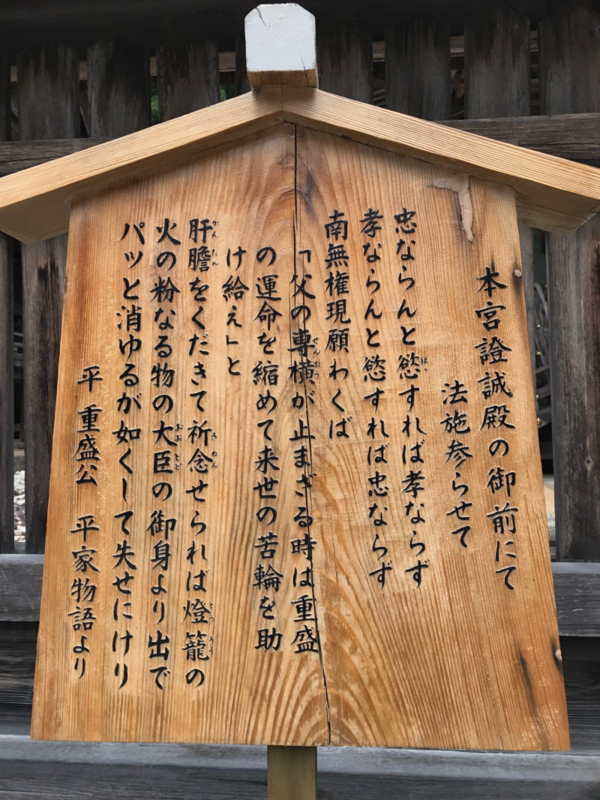 本宮證誠殿の御前にて
法施参らせて
忠ならんと慾すれば孝ならず
孝ならんと慾すれば忠ならず
南無権現願わくば
「父の専横が止まざる時は重盛
の運命を縮めて来世の苦輪を助
け給え」と
肝膽をくだきて祈念せられば燈籠の
火の粉なる物の大臣の御身より出で
パッと消ゆるが如くして失せにけり
平 重盛公 平家物語より